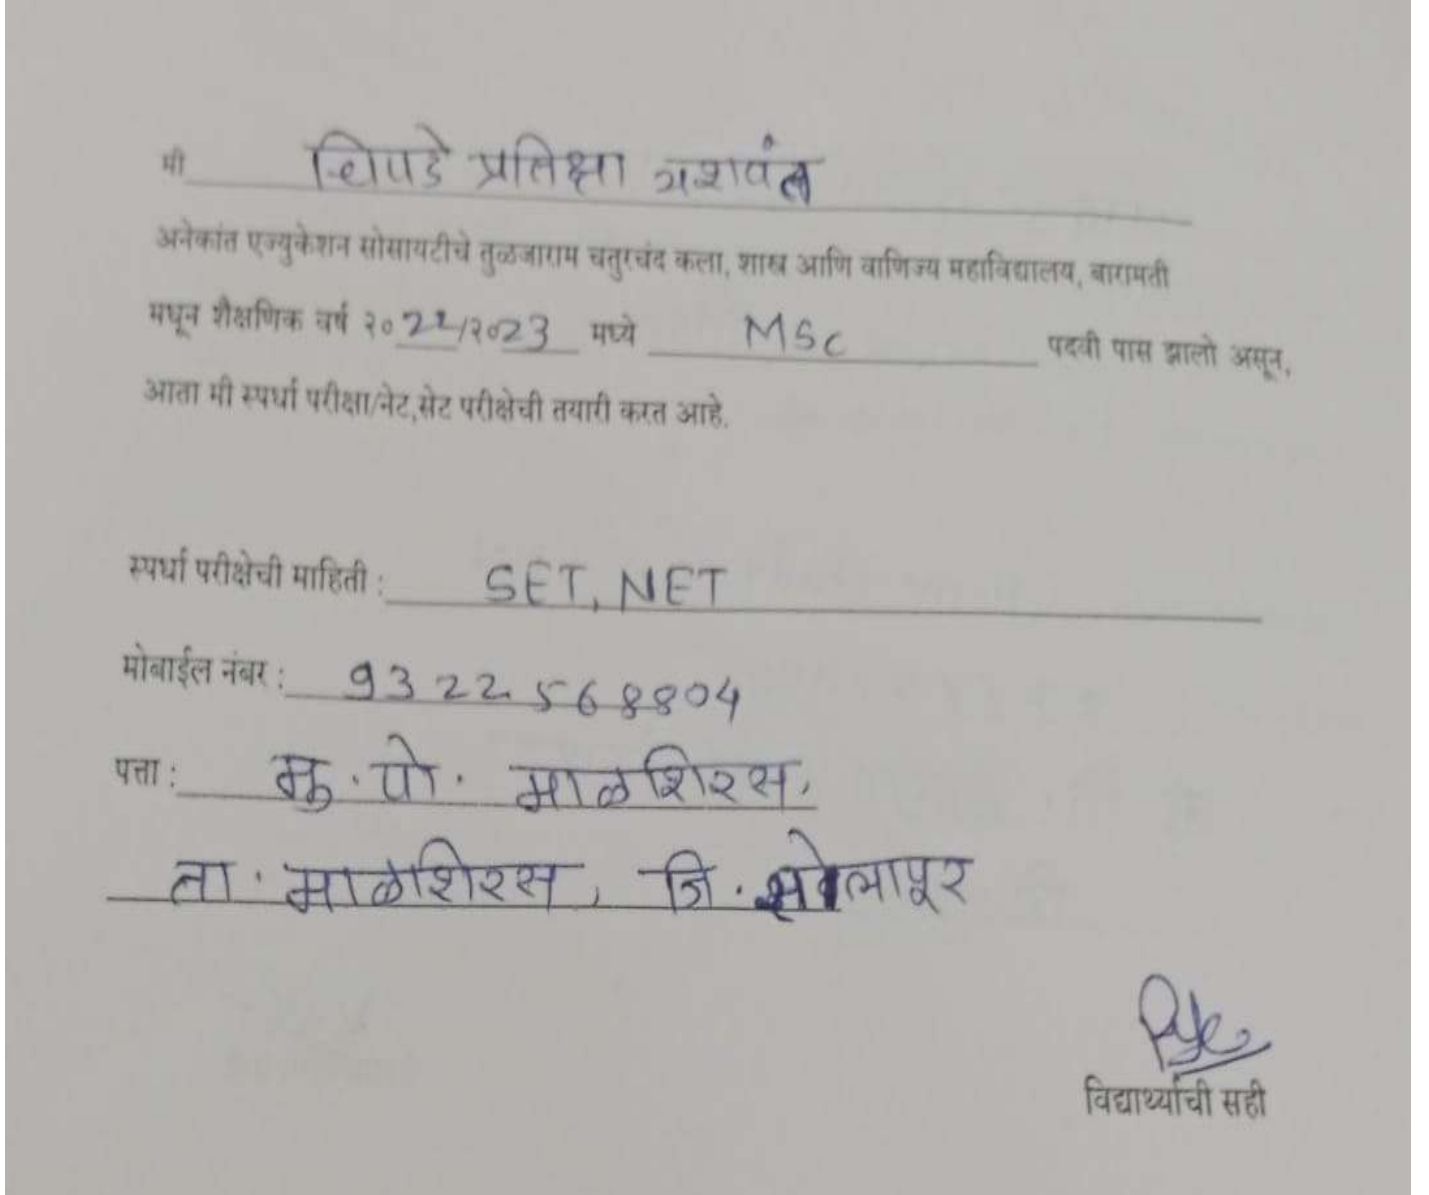 मी शिपडे प्रतिक्षा यशवंत
अनेकांत एज्युकेशन सोसायटीचे तुळजाराम चतुरचंद कला, शास्त्र आणि वाणिज्य महाविद्यालय, बारामती
मधून शैक्षणिक वर्ष २०22/२०23 मध्ये MSc पदवी पास झालो असून,
आता मी स्पर्धा परीक्षा/नेट,सेट परीक्षेची तयारी करत आहे.
स्पर्धा परीक्षेची माहिती : SET, NET
मोबाईल नंबर : 9322568804
पत्ता : मु. पो. माळशिरस,
ता. माळशिरस, जि. सोलापूर
विद्यार्थ्याची सही